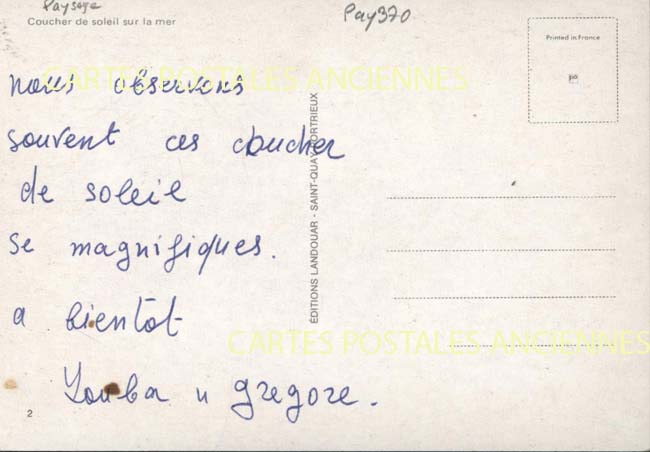 Paysage
Pay370
Coucher de soleil sur la mer
Printed in France
nous observons
souvent ces coucher
de soleil
se magnifiques.
a bientot
Louba u gregore.
2
ÉDITIONS LANDOUAR - SAINT-QUAY-PORTRIEUX
CARTES POSTALES ANCIENNES
CARTES POSTALES ANCIENNES